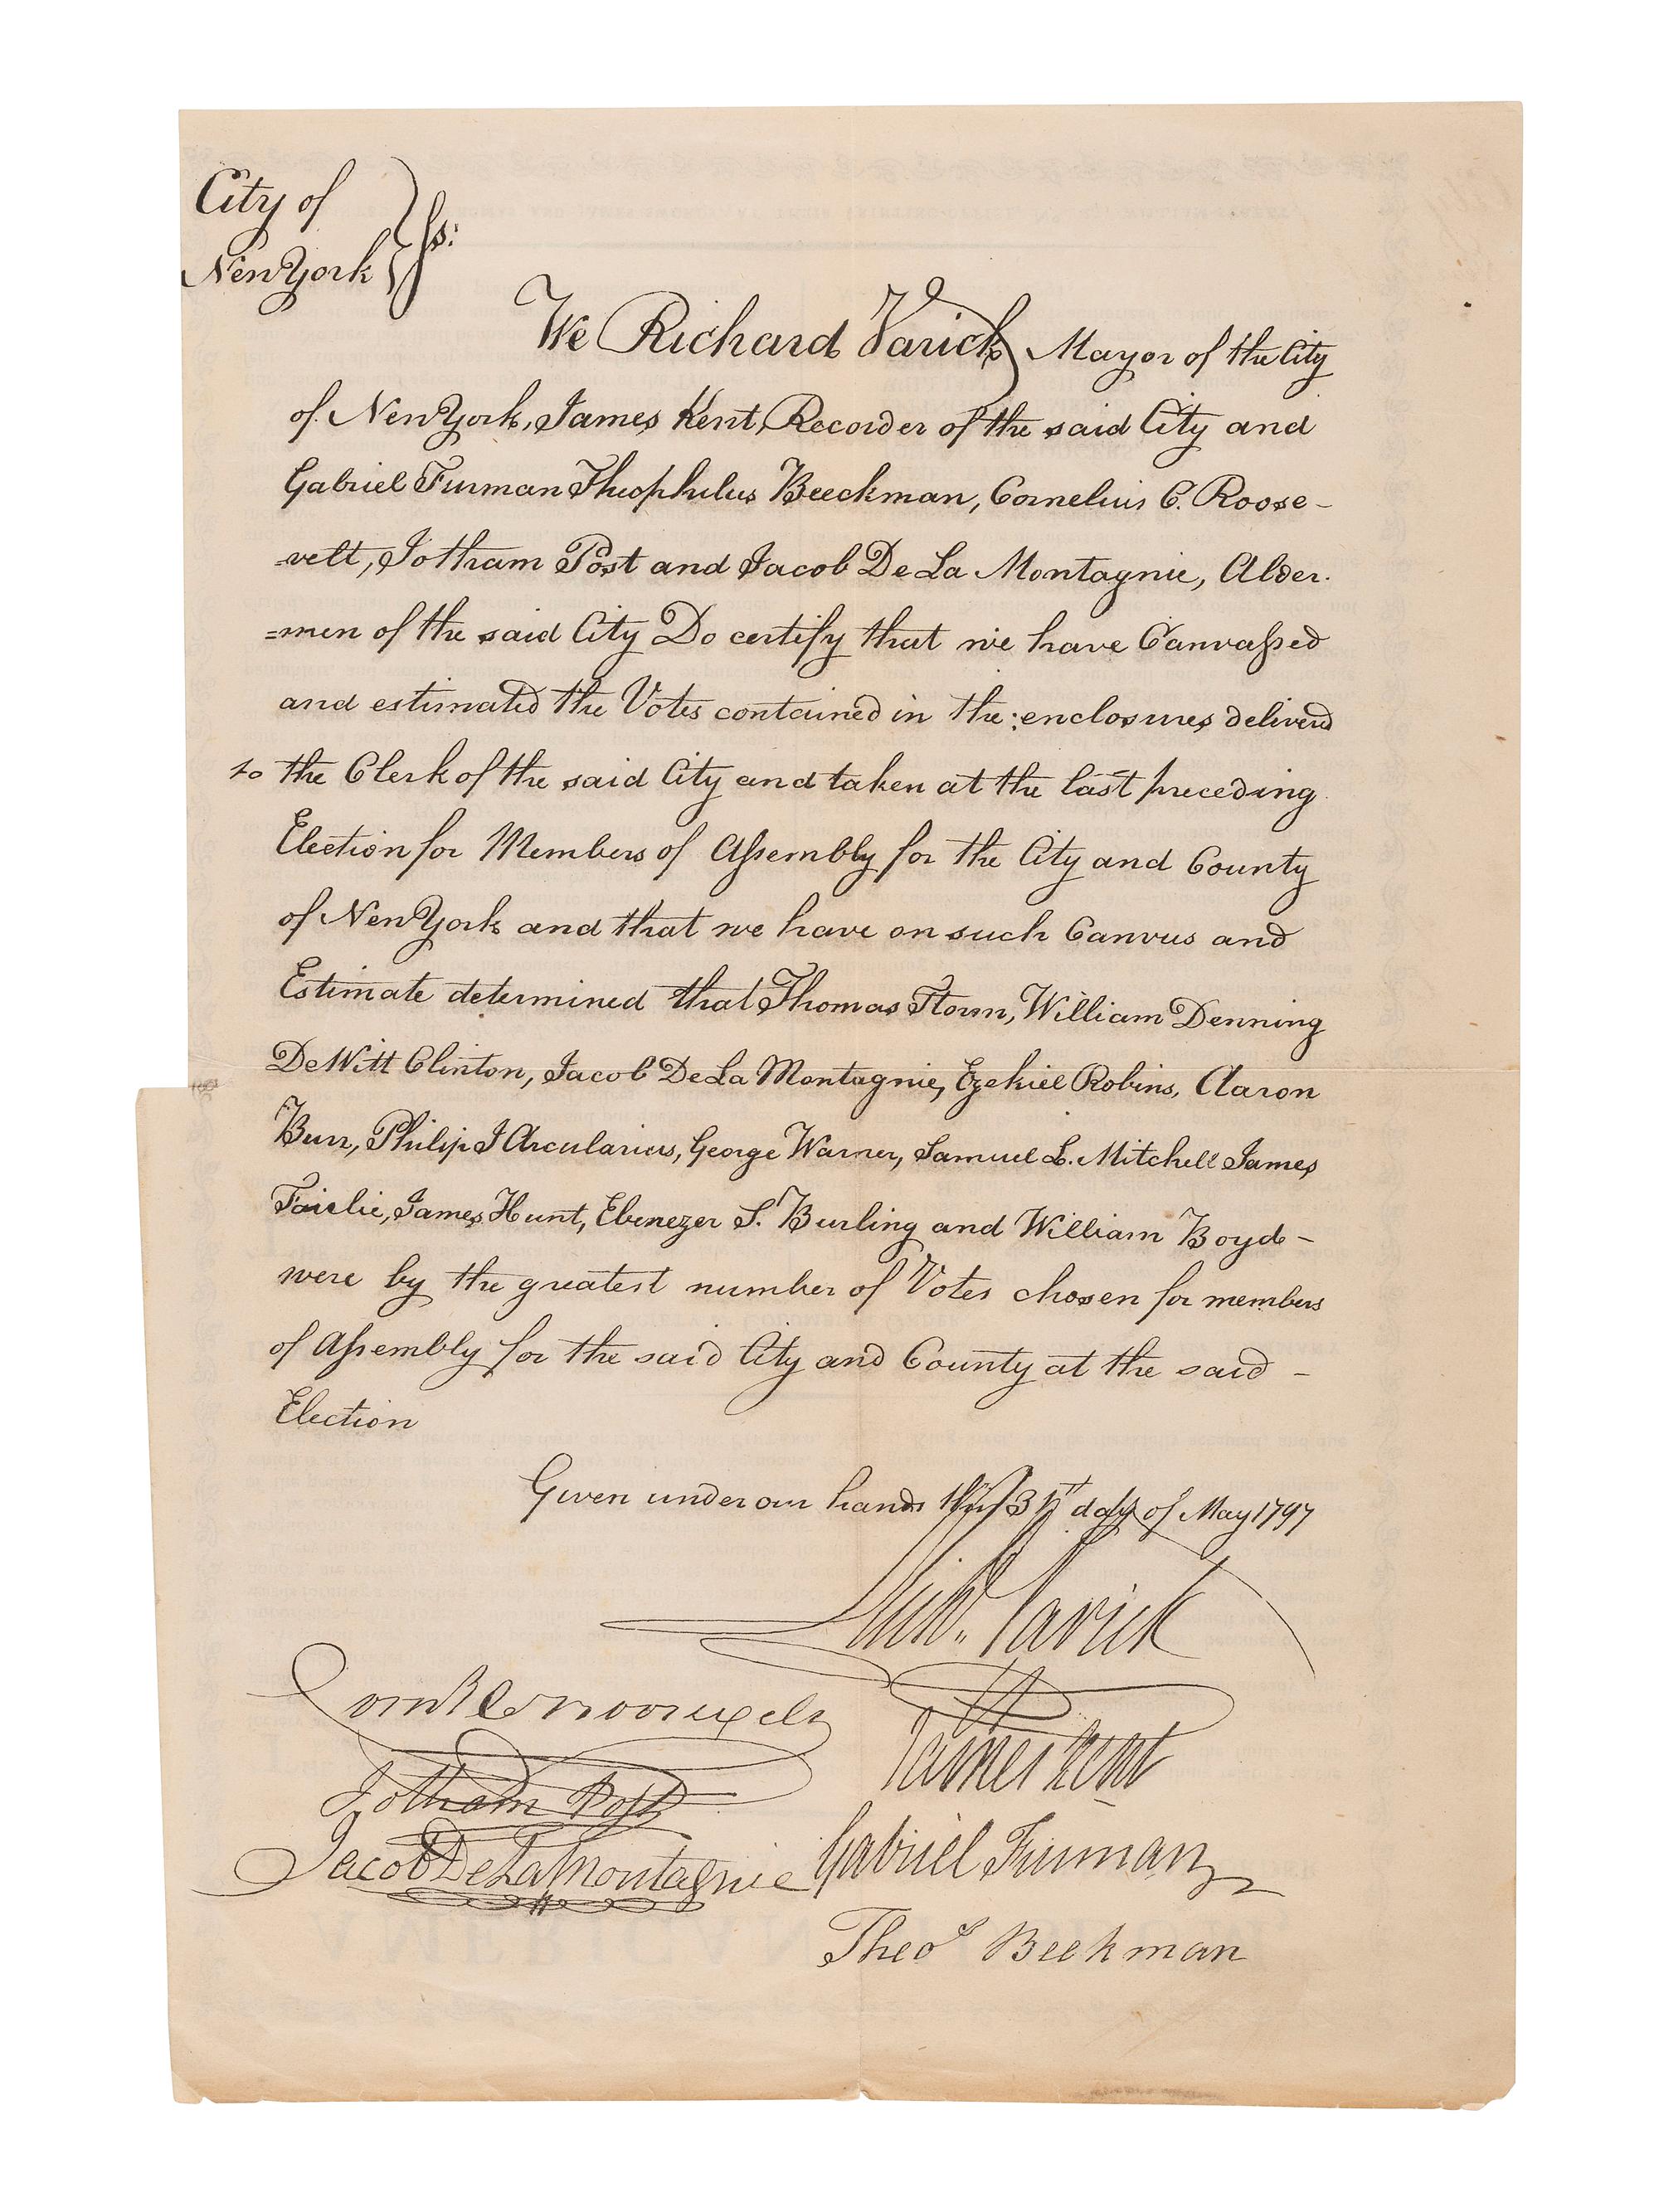 City of
New York } ss:
We Richard Varick Mayor of the City
of New York, James Kent, Recorder of the said City and
Gabriel Furman Theophulus Beeckman, Cornelius C. Roose-
-velt, Jotham Post and Jacob De La Montagnie, Alder-
=men of the said City Do certify that we have Canvaſsed
and estimated the Votes contained in the enclosures deliverd
to the Clerk of the said City and taken at the last preceding
Election for Members of Aſsembly for the City and County
of New York and that we have on such Canvus and
Estimate determined that Thomas Storm, William Denning
De Witt Clinton, Jacob De La Montagnie, Ezekiel Robins, Aaron
Burr, Philip I Arcularius, George Warner, Samuel L. Mitchell James
Fairlie, James Hunt, Ebenezer S. Burling and William Boyd -
were by the greatest number of Votes chosen for members
of Aſsembly for the said City and County at the said -
Election
Given under our hands this 31st day of May 1797
Richd. Varick
James Kent
Gabriel Furman
Theos Beekman
Corns C Roosevelt
Jotham Post
Jacob De La Montagnie